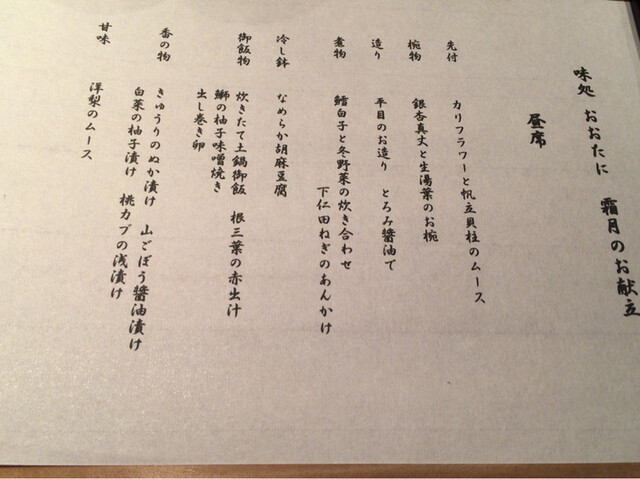 味処 おおたに 霜月のお献立
昼席
先付 カリフラワーと帆立貝柱のムース
椀物 銀杏真丈と生湯葉のお椀
造り 平目のお造り とろみ醤油で
煮物 鱈白子と冬野菜の炊き合わせ
下仁田ねぎのあんかけ
冷し鉢 なめらか胡麻豆腐
御飯物 炊きたて土鍋御飯 根三葉の赤出汁
鰤の柚子味噌焼き
出し巻き卵
香の物 きゅうりのぬか漬け 山ごぼう醤油漬け
白菜の柚子漬け 桃カブの浅漬け
甘味 洋梨のムース